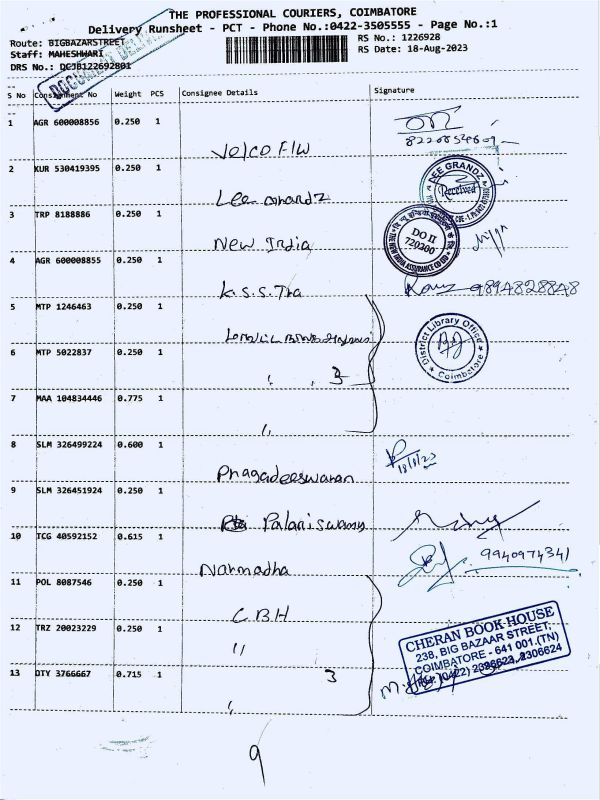 THE PROFESSIONAL COURIERS, COIMBATORE
Delivery Runsheet - PCT - Phone No.:0422-3505555 - Page No.:1
Route: BIGBAZARSTREET
Staff: MAHESHWARI
DRS No.: QCJB122692801
RS No.: 1226928
RS Date: 18-Aug-2023
S No Consignment No Weight PCS Consignee Details Signature
1 AGR 600008856 0.250 1
Velco F/W
8220854609
2 KUR 530419395 0.250 1
Lee Grandz
DEE GRANDZ
Received
3 TRP 8188886 0.250 1
New India
THE NEW INDIA ASSURANCE CO LTD
DO II
720200
4 AGR 600008855 0.250 1
K.S.S. Tra
9894828848
5 MTP 1246463 0.250 1
District Library Office
Coimbatore
6 MTP 5022837 0.250 1
" " 3
7 MAA 104834446 0.775 1
"
8 SLM 326499224 0.600 1
Pragadeeswaran
18/8/23
9 SLM 326451924 0.250 1
Palaniswamy
10 TCG 40592152 0.615 1
Narmadha
9940974341
11 POL 8087546 0.250 1
C.B.H
12 TRZ 20023229 0.250 1
"
13 OTY 3766667 0.715 1
" 3
CHERAN BOOK HOUSE
238, BIG BAZAAR STREET,
COIMBATORE - 641 001.(TN)
PH: (0422) 2396623, 2306624
9